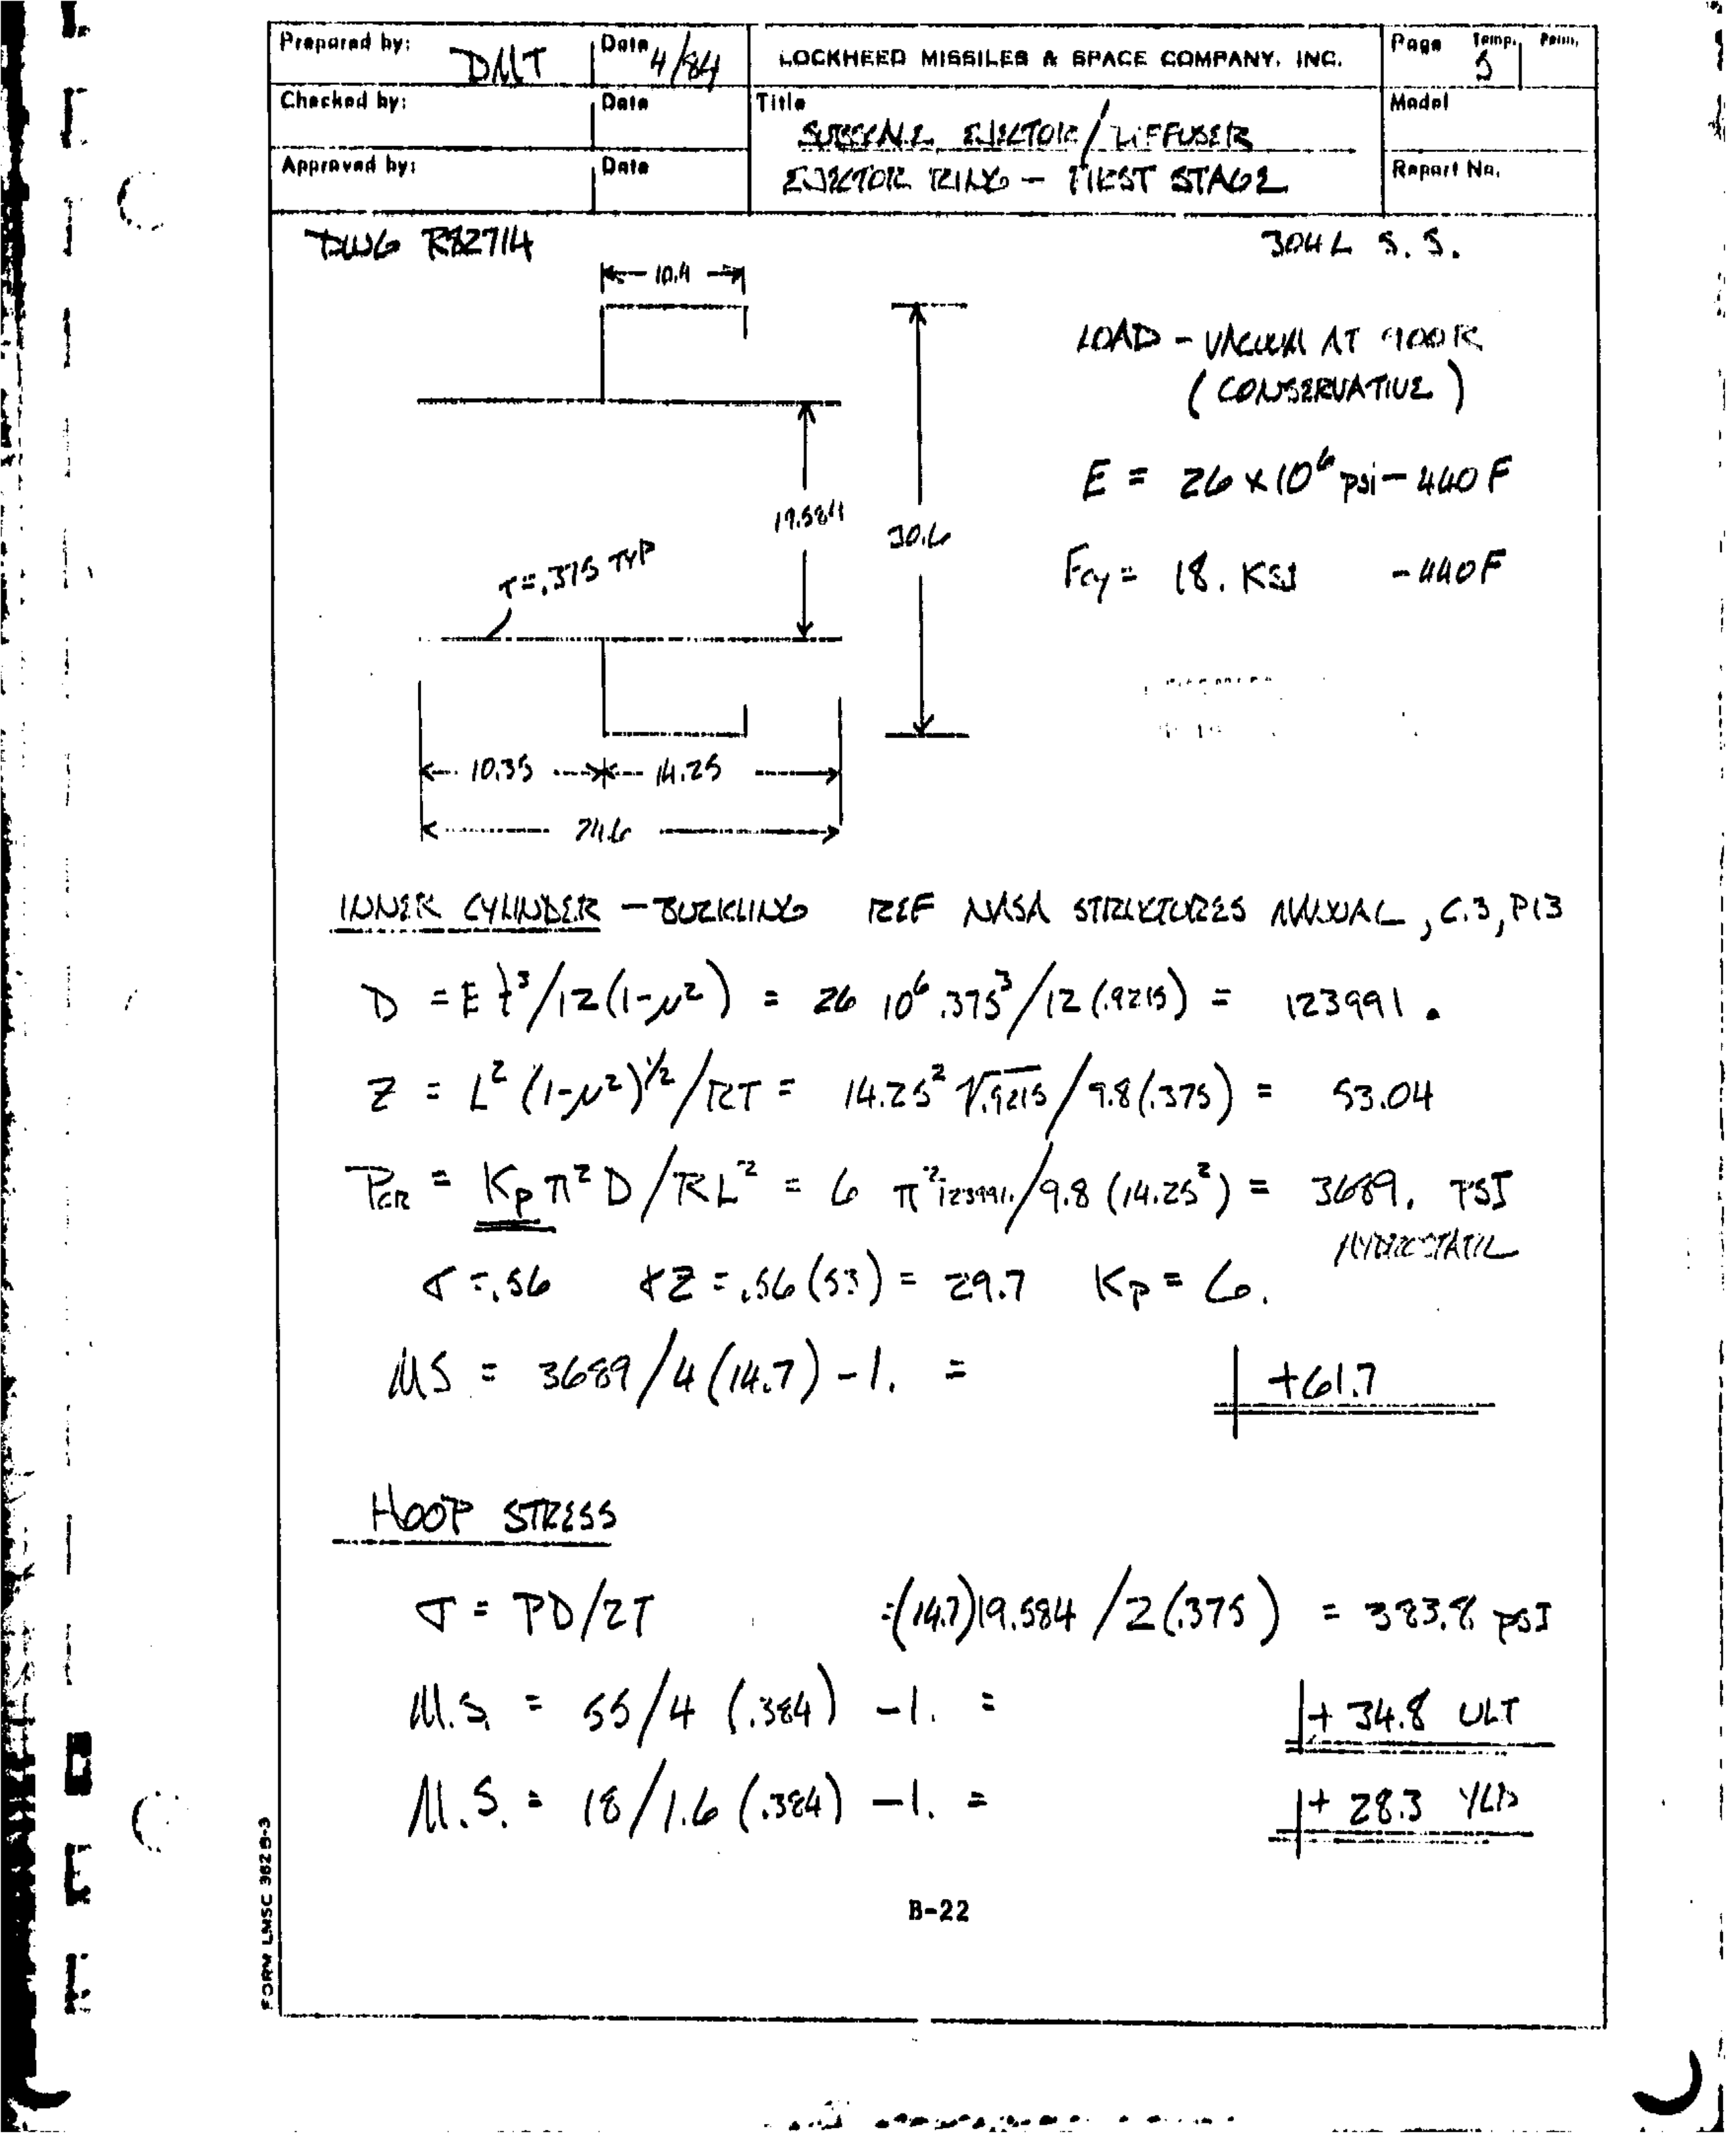 Prepared by: DMT Date 4/84 LOCKHEED MISSILES & SPACE COMPANY, INC. Page Temp. Perm.
5
Checked by: Date Title Model
SUBSCALE EJECTOR / DIFFUSER
Approved by: Date EJECTOR RING - FIRST STAGE Report No.
DWG R82714 304L S.S.
10.4
LOAD - VACUUM AT 900R
(CONSERVATIVE)
E = 26 x 10⁶ psi - 440F
19.584
30.6
T=.375 TYP
Fcy = 18. KSI - 440F
10.35 14.25
24.6
INNER CYLINDER - BUCKLING REF NASA STRUCTURES MANUAL, C.3, P13
D = E t³/12(1-μ²) = 26 10⁶ .375³/12(.9215) = 123991.
Z = L² (1-μ²)^½/RT = 14.25² √.9215/9.8(.375) = 53.04
PCR = Kp π² D/RL² = 6 π² 123991./9.8 (14.25²) = 3689. PSI
HYDROSTATIC
γ =.56 γZ = .56(53) = 29.7 Kp = 6.
MS = 3689/4(14.7) -1. = +61.7
HOOP STRESS
σ = PD/2T =(14.7)19.584/2(.375) = 383.8 PSI
M.S. = 55/4 (.384) -1. = + 34.8 ULT
M.S. = 18/1.6 (.384) -1. = + 28.3 YLD
B-22
FORM LMSC 362B-3